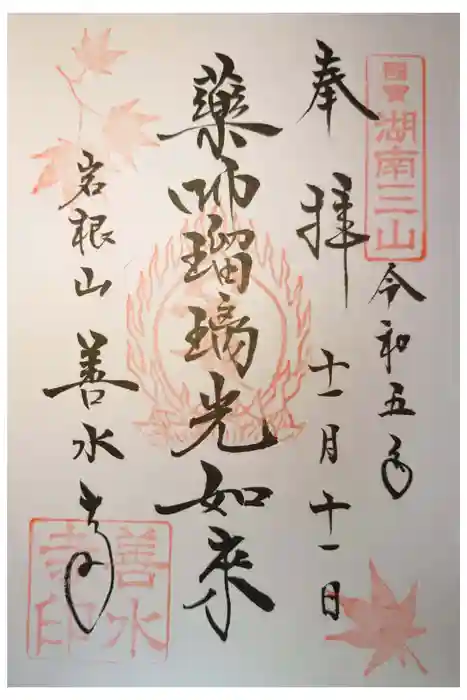 国宝
湖南三山
奉拝
令和五年
十一月十一日
藥師瑠璃光如来
岩根山 善水寺
善水寺印